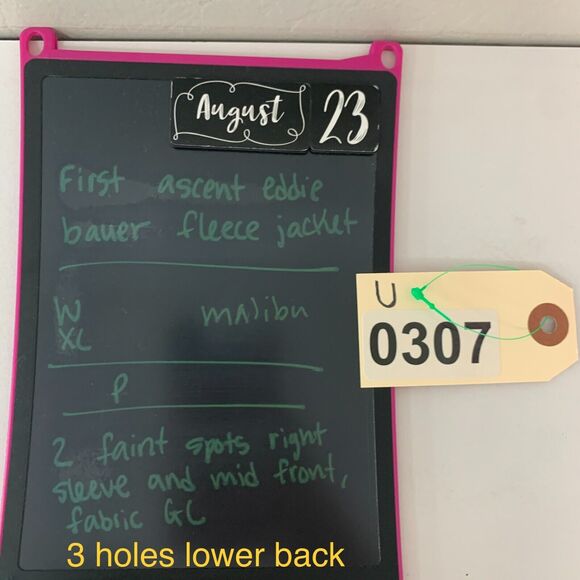 August 23
First ascent eddie
bauer fleece jacket
W malibu
XL
P
2 faint spots right
sleeve and mid front,
fabric GC
3 holes lower back
U
0307